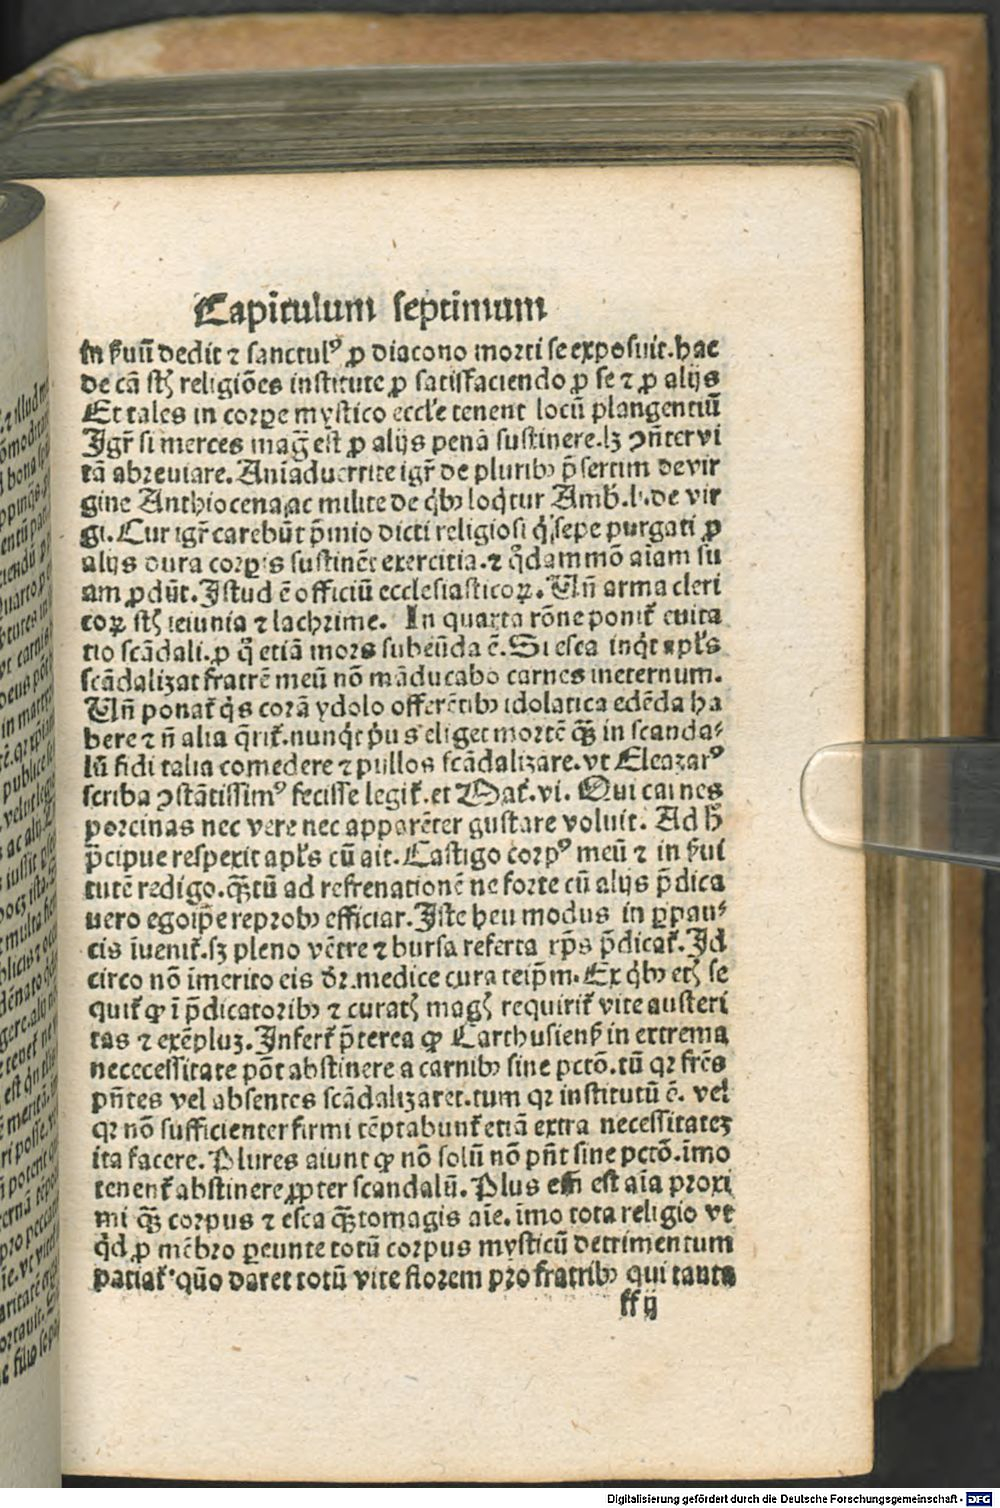 Capitulum septimum
in ẜuũ dedit ⁊ sanctulꝰ ꝓ diacono morti se exposuit. hac
de cã st̃ religiões institute ꝓ satisfaciendo ꝓ se ⁊ ꝓ alijs
Et tales in corꝑe mystico eccl'e tenent locũ plangentiũ
Igr̃ si merces mag̃ est ꝓ alijs penã sustinere. lꝫ ꝯñter vi
tã abreuiare. Aniaduertite igr̃ de pluribꝰ p̃sertim de vir
gine Anthiocena, ac milite de q̇bꝰ loq̃tur Amb. l. de vir
gi. Cur igr̃ carebũt p̃mio dicti religiosi q̇ sepe purgati ꝓ
alijs dura corꝑis sustinẽt exercitia. ⁊ q̃dammõ aiam su
am ꝑdũt. Istud ẽ officiũ ecclesiasticoꝝ. Vñ arma cleri
coꝝ st̃ ieiunia ⁊ lachrime. In quarta rõne ponit̃ euita
tio scãdali. ꝓ q̃ etiã mors subeũda ẽ. Si esca inq̇t apl's
scãdalizat fratrẽ meũ nõ mãducabo carnes ineternum.
Vñ ponat̃ q̇s corã ydolo offerẽtibꝰ idolatica edẽda ha
bere ⁊ ñ alia q̃rit̃. nunq̇t p̃us eliget mortẽ q̃ꝫ in scanda⸗
lũ fidi talia comedere ⁊ pullos scãdalizare. vt Eleazarꝰ
scriba ꝯstãtissimꝰ fecisse legit̃. et Mat̃. vi. Qui carnes
porcinas nec vere nec apparẽter gustare voluit. Ad h̃
p̃cipue respexit apl's cũ ait. Castigo corpꝰ meũ ⁊ in ẜui
tutẽ redigo. q̃ꝫtũ ad refrenationẽ ne forte cũ alijs p̃dica
uero egoip̃e reprobꝰ efficiar. Iste heu modus in ꝑpau⸗
cis ĩuenit̃. sꝫ pleno vẽtre ⁊ bursa referta xp̃s p̃dicat̃. Id
circo nõ ĩmerito eis dr̃. medice cura teip̃m. Ex q̇bꝰ etꝫ se
quit̃ ꝙ ĩ p̃dicatoribꝰ ⁊ curatꝫ magꝫ requirit̃ vite austeri
tas ⁊ exẽpluꝫ. Infert̃ p̃terea ꝙ Carthusieñ in extrema
nececessitate põt abstinere a carnibꝰ sine pctõ. tũ qꝛ fr̃es
pñtes vel absentes scãdalizaret. tum qꝛ institutũ ẽ. vel
qꝛ nõ sufficienter firmi tẽptabunt̃ etiã extra necessitateꝫ
ita facere. Plures aiunt ꝙ nõ solũ nõ pñt sine pctõ. ĩmo
tenent̃ abstinere ꝓpter scandalũ. Plus em̃ est aĩa proxi
mi q̃ꝫ corpus ⁊ esca q̃ꝫtomagis aĩe. ĩmo tota religio vt
q̇d ꝓ mẽbro ꝑeunte totũ corpus mysticũ detrimentum
patiat̃. quõ daret totũ vite florem pro fratribꝰ qui tanta
ff ij
Digitalisierung gefördert durch die Deutsche Forschungsgemeinschaft - DFG